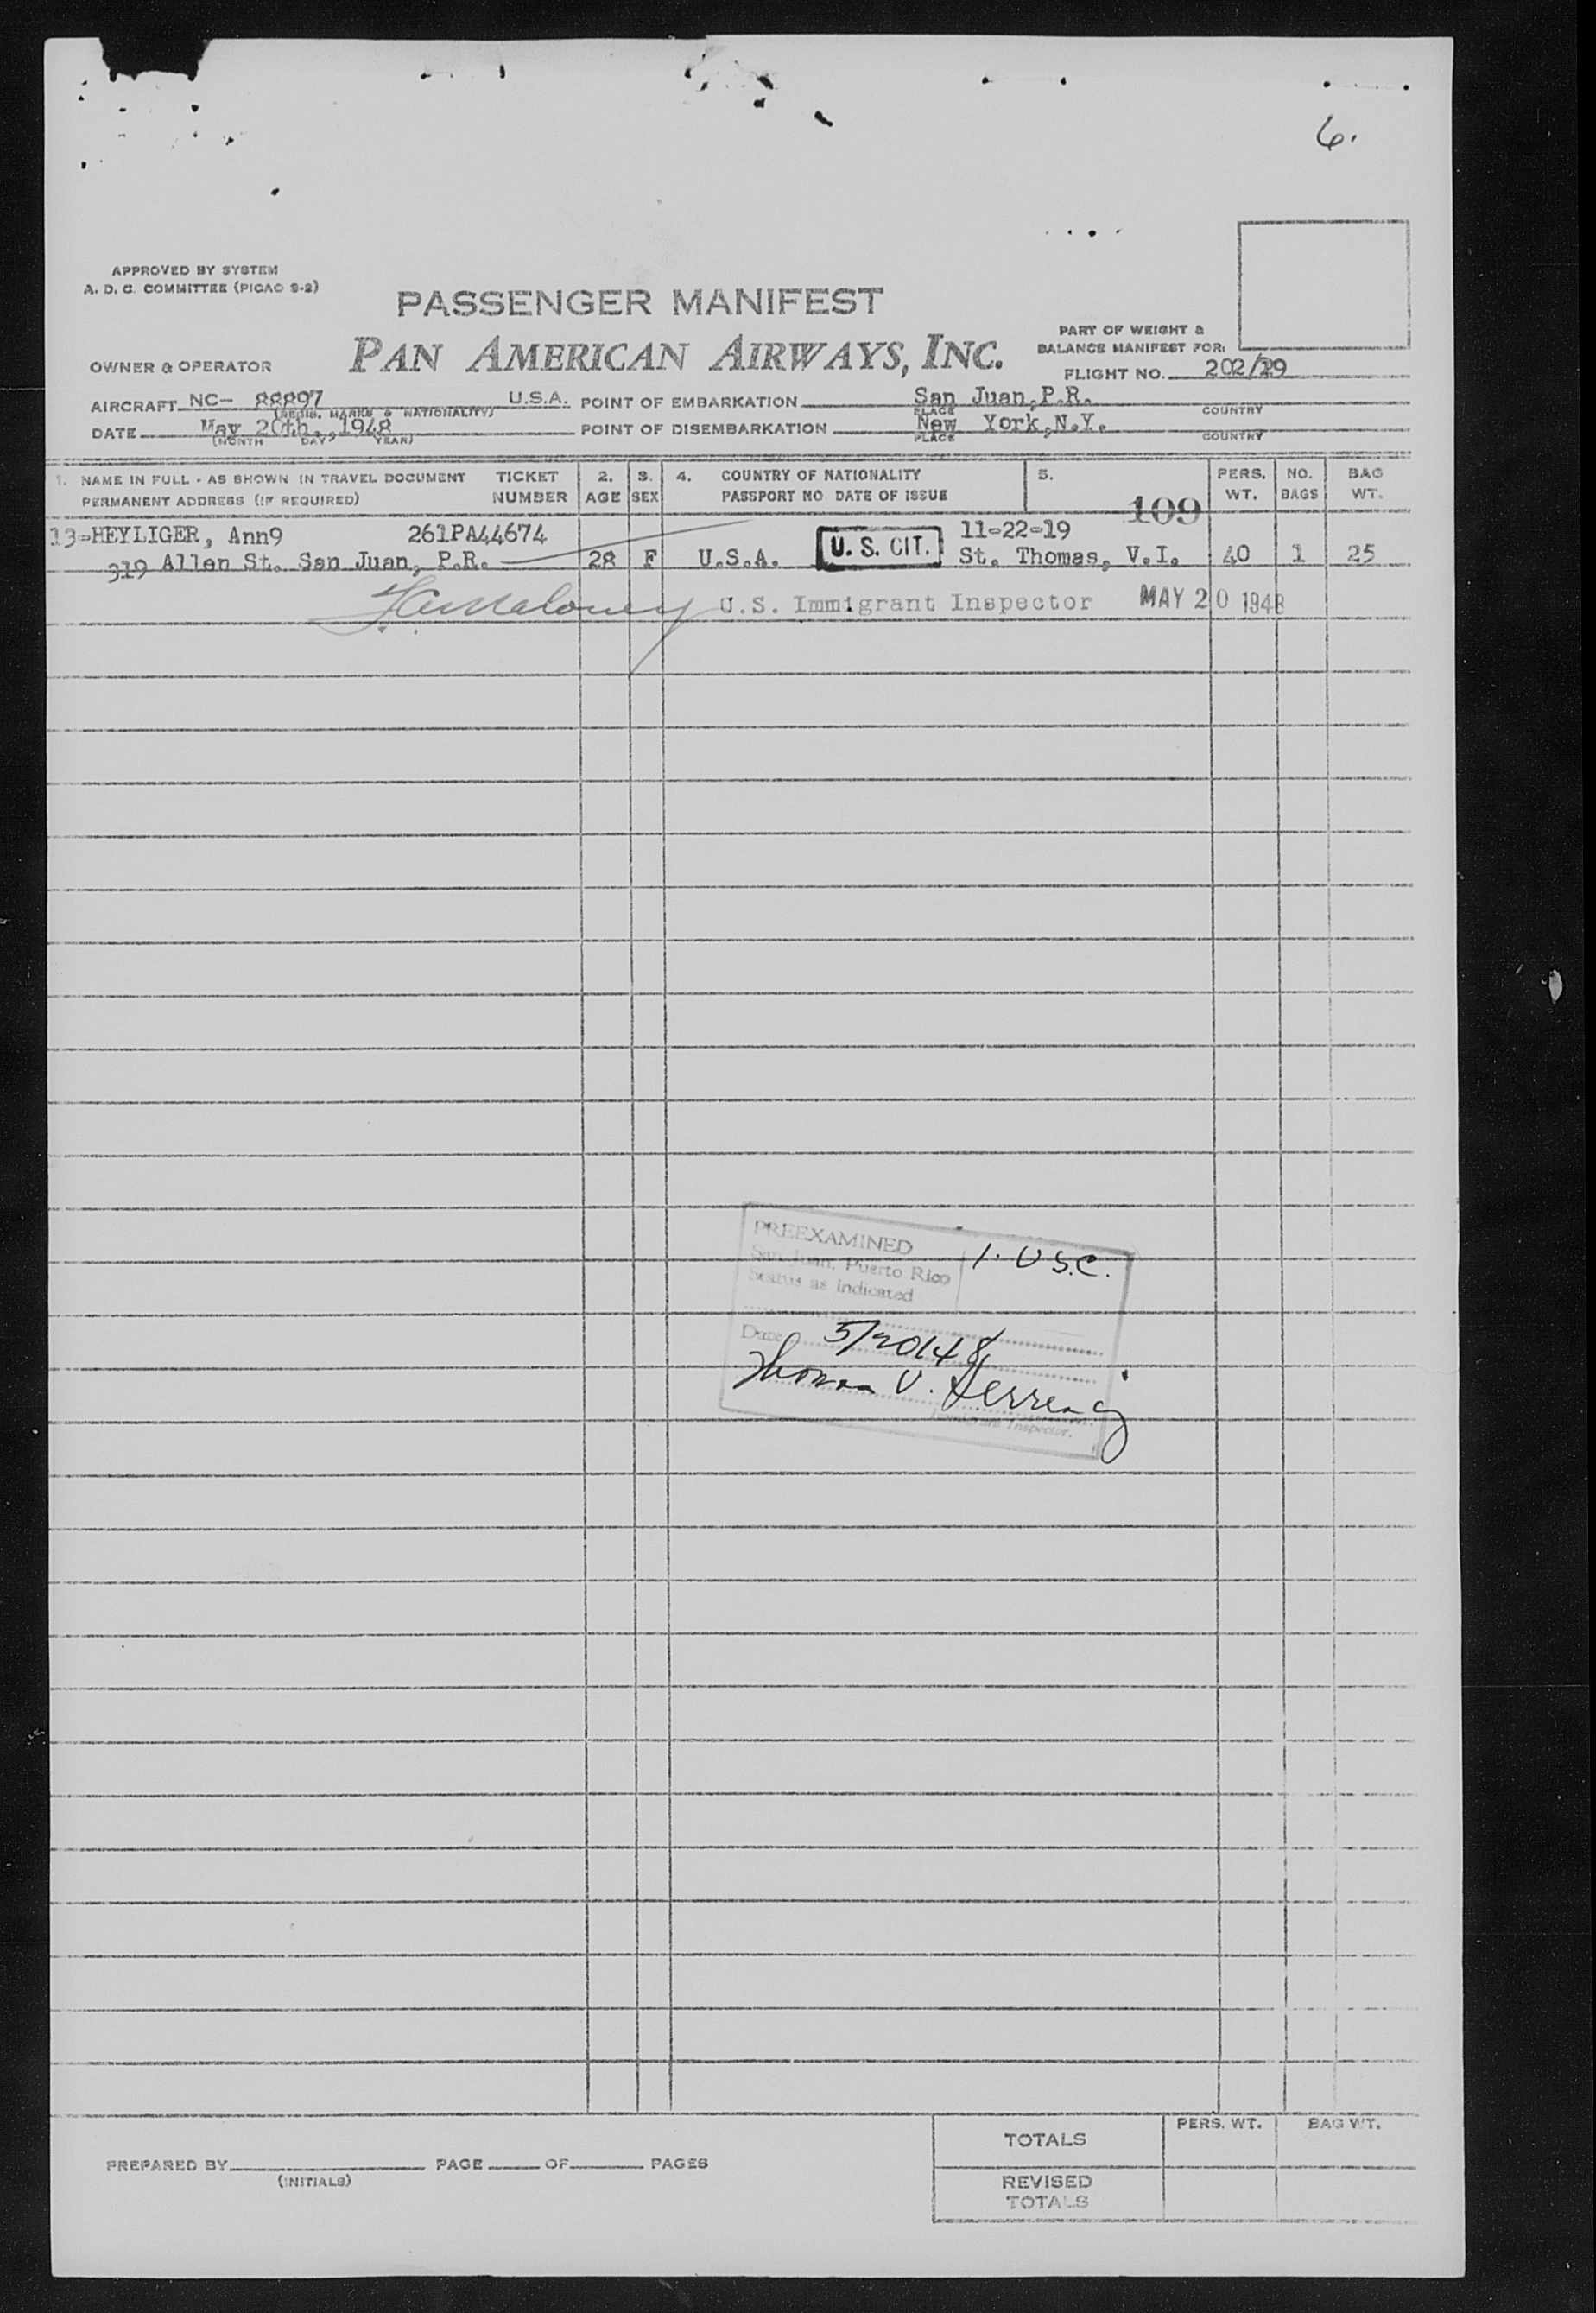 6.
APPROVED BY SYSTEM
A. D. C. COMMITTEE (PICAO 9-2)
PASSENGER MANIFEST
PAN AMERICAN AIRWAYS, INC.
PART OF WEIGHT &
BALANCE MANIFEST FOR:
OWNER & OPERATOR
FLIGHT NO. 202/29
AIRCRAFT NC- 88897 U.S.A. POINT OF EMBARKATION San Juan,P.R.
(REGIS. MARKS & NATIONALITY) PLACE COUNTRY
DATE May 20th.,1948 POINT OF DISEMBARKATION New York,N.Y.
(MONTH DAY, YEAR) PLACE COUNTRY
1. NAME IN FULL - AS SHOWN IN TRAVEL DOCUMENT TICKET 2. 3. 4. COUNTRY OF NATIONALITY 5. PERS. NO. BAG
PERMANENT ADDRESS (IF REQUIRED) NUMBER AGE SEX PASSPORT NO. DATE OF ISSUE WT. BAGS WT.
109
13-HEYLIGER, Ann9 261PA44674 11-22-19
319 Allen St. San Juan, P.R. 28 F U.S.A. U. S. CIT. St. Thomas, V.I. 40 1 25
U.S. Immigrant Inspector MAY 20 1948
PREEXAMINED
San Juan, Puerto Rico 1. U.S.C.
Status as indicated
Date 5/20/48
Thomas V. Herrency
Immigrant Inspector.
TOTALS PERS. WT. BAG WT.
PREPARED BY PAGE OF PAGES
(INITIALS)
REVISED
TOTALS